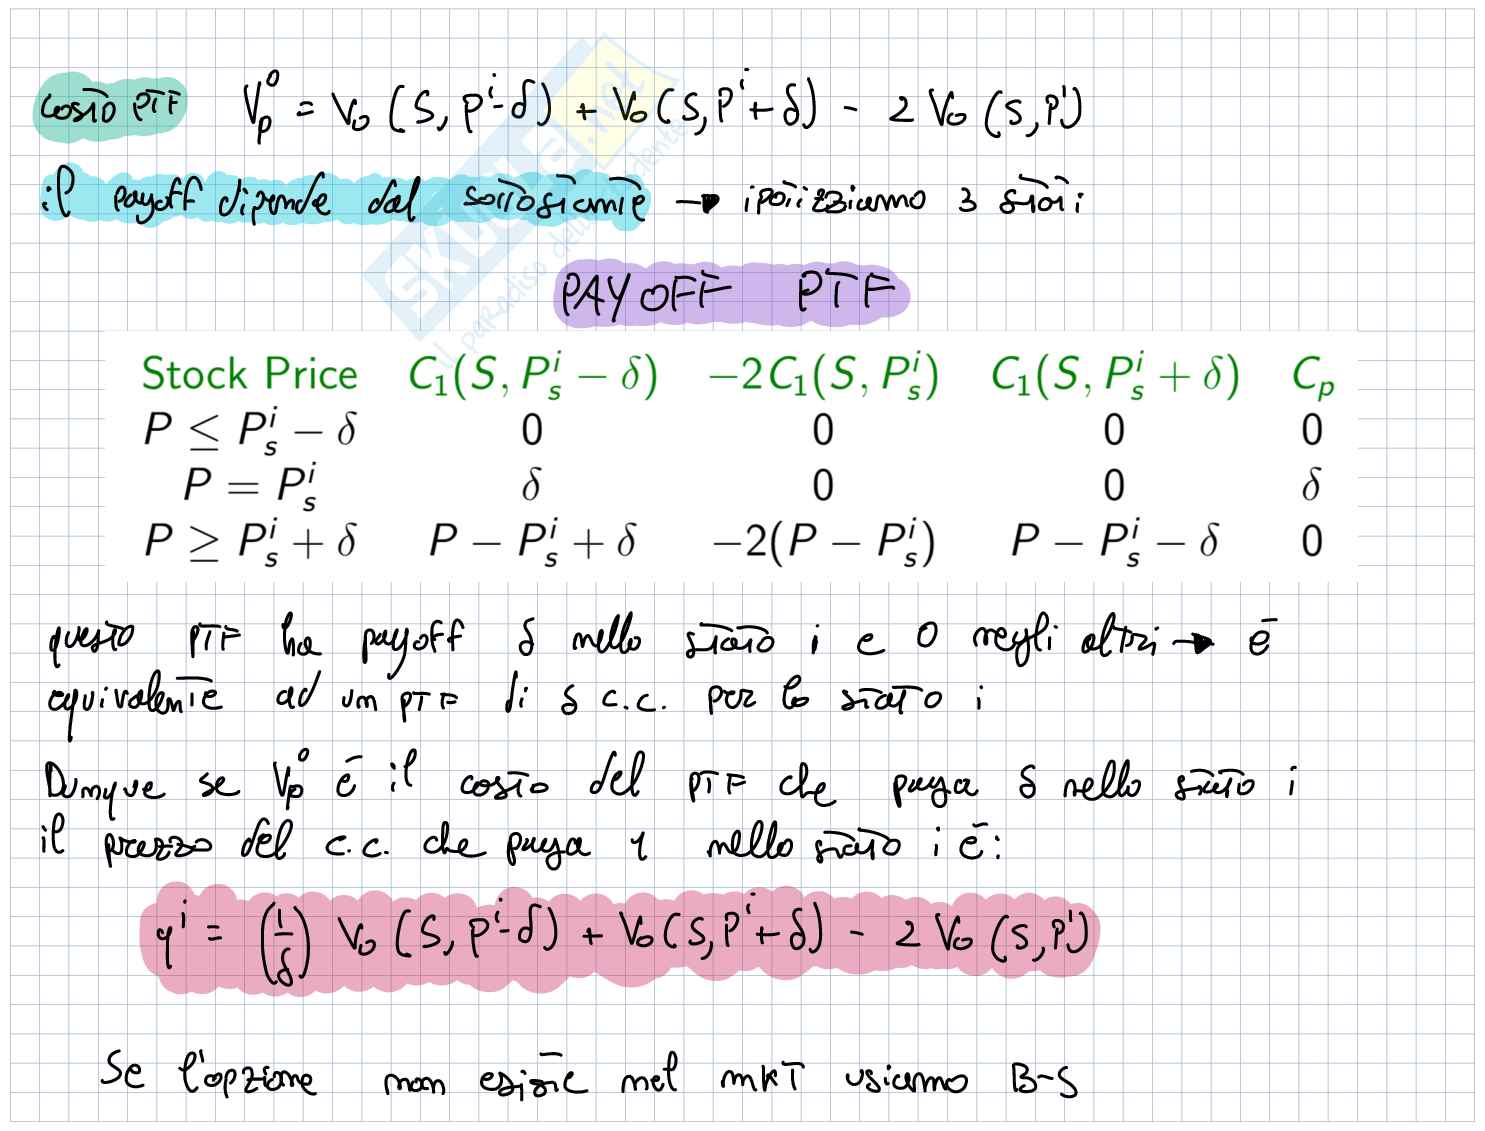 costo PTF V_p^0 = V_0 (S, P^i-δ) + V_0 (S, P^i+δ) - 2 V_0 (S, P^i)
il payoff dipende dal sottostante → ipotizziamo 3 stati
SKUOLA.net
il paradiso dello studente
PAYOFF PTF
Stock Price C_1(S, P_s^i − δ) −2C_1(S, P_s^i) C_1(S, P_s^i + δ) C_p
P ≤ P_s^i − δ 0 0 0 0
P = P_s^i δ 0 0 δ
P ≥ P_s^i + δ P − P_s^i + δ −2(P − P_s^i) P − P_s^i − δ 0
questo PTF ha payoff δ nello stato i e 0 negli altri → è
equivalente ad un PTF di δ c.c. per lo stato i
Dunque se V_p^0 è il costo del PTF che paga δ nello stato i
il prezzo del c.c. che paga 1 nello stato i è:
q^i = (1/δ) V_0 (S, P^i-δ) + V_0 (S, P^i+δ) - 2 V_0 (S, P^i)
Se l'opzione non esiste nel mkt usiamo B-S